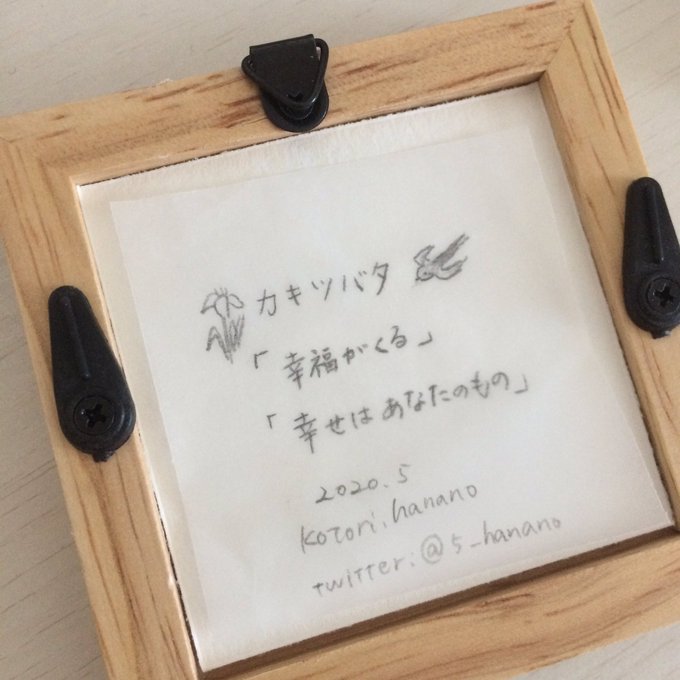 カキツバタ
「幸福がくる」
「幸せはあなたのもの」
2020.5
kotori.hanano
twitter:@5_hanano